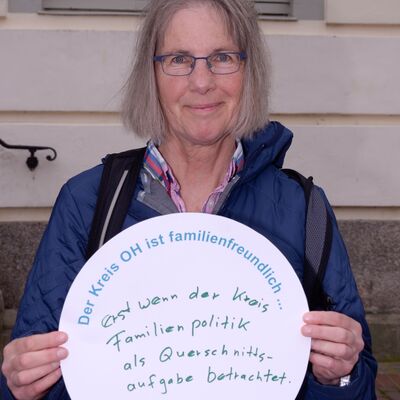 Der Kreis OH ist familienfreundlich ...
erst wenn der Kreis
Familienpolitik
als Querschnitts-
aufgabe betrachtet.